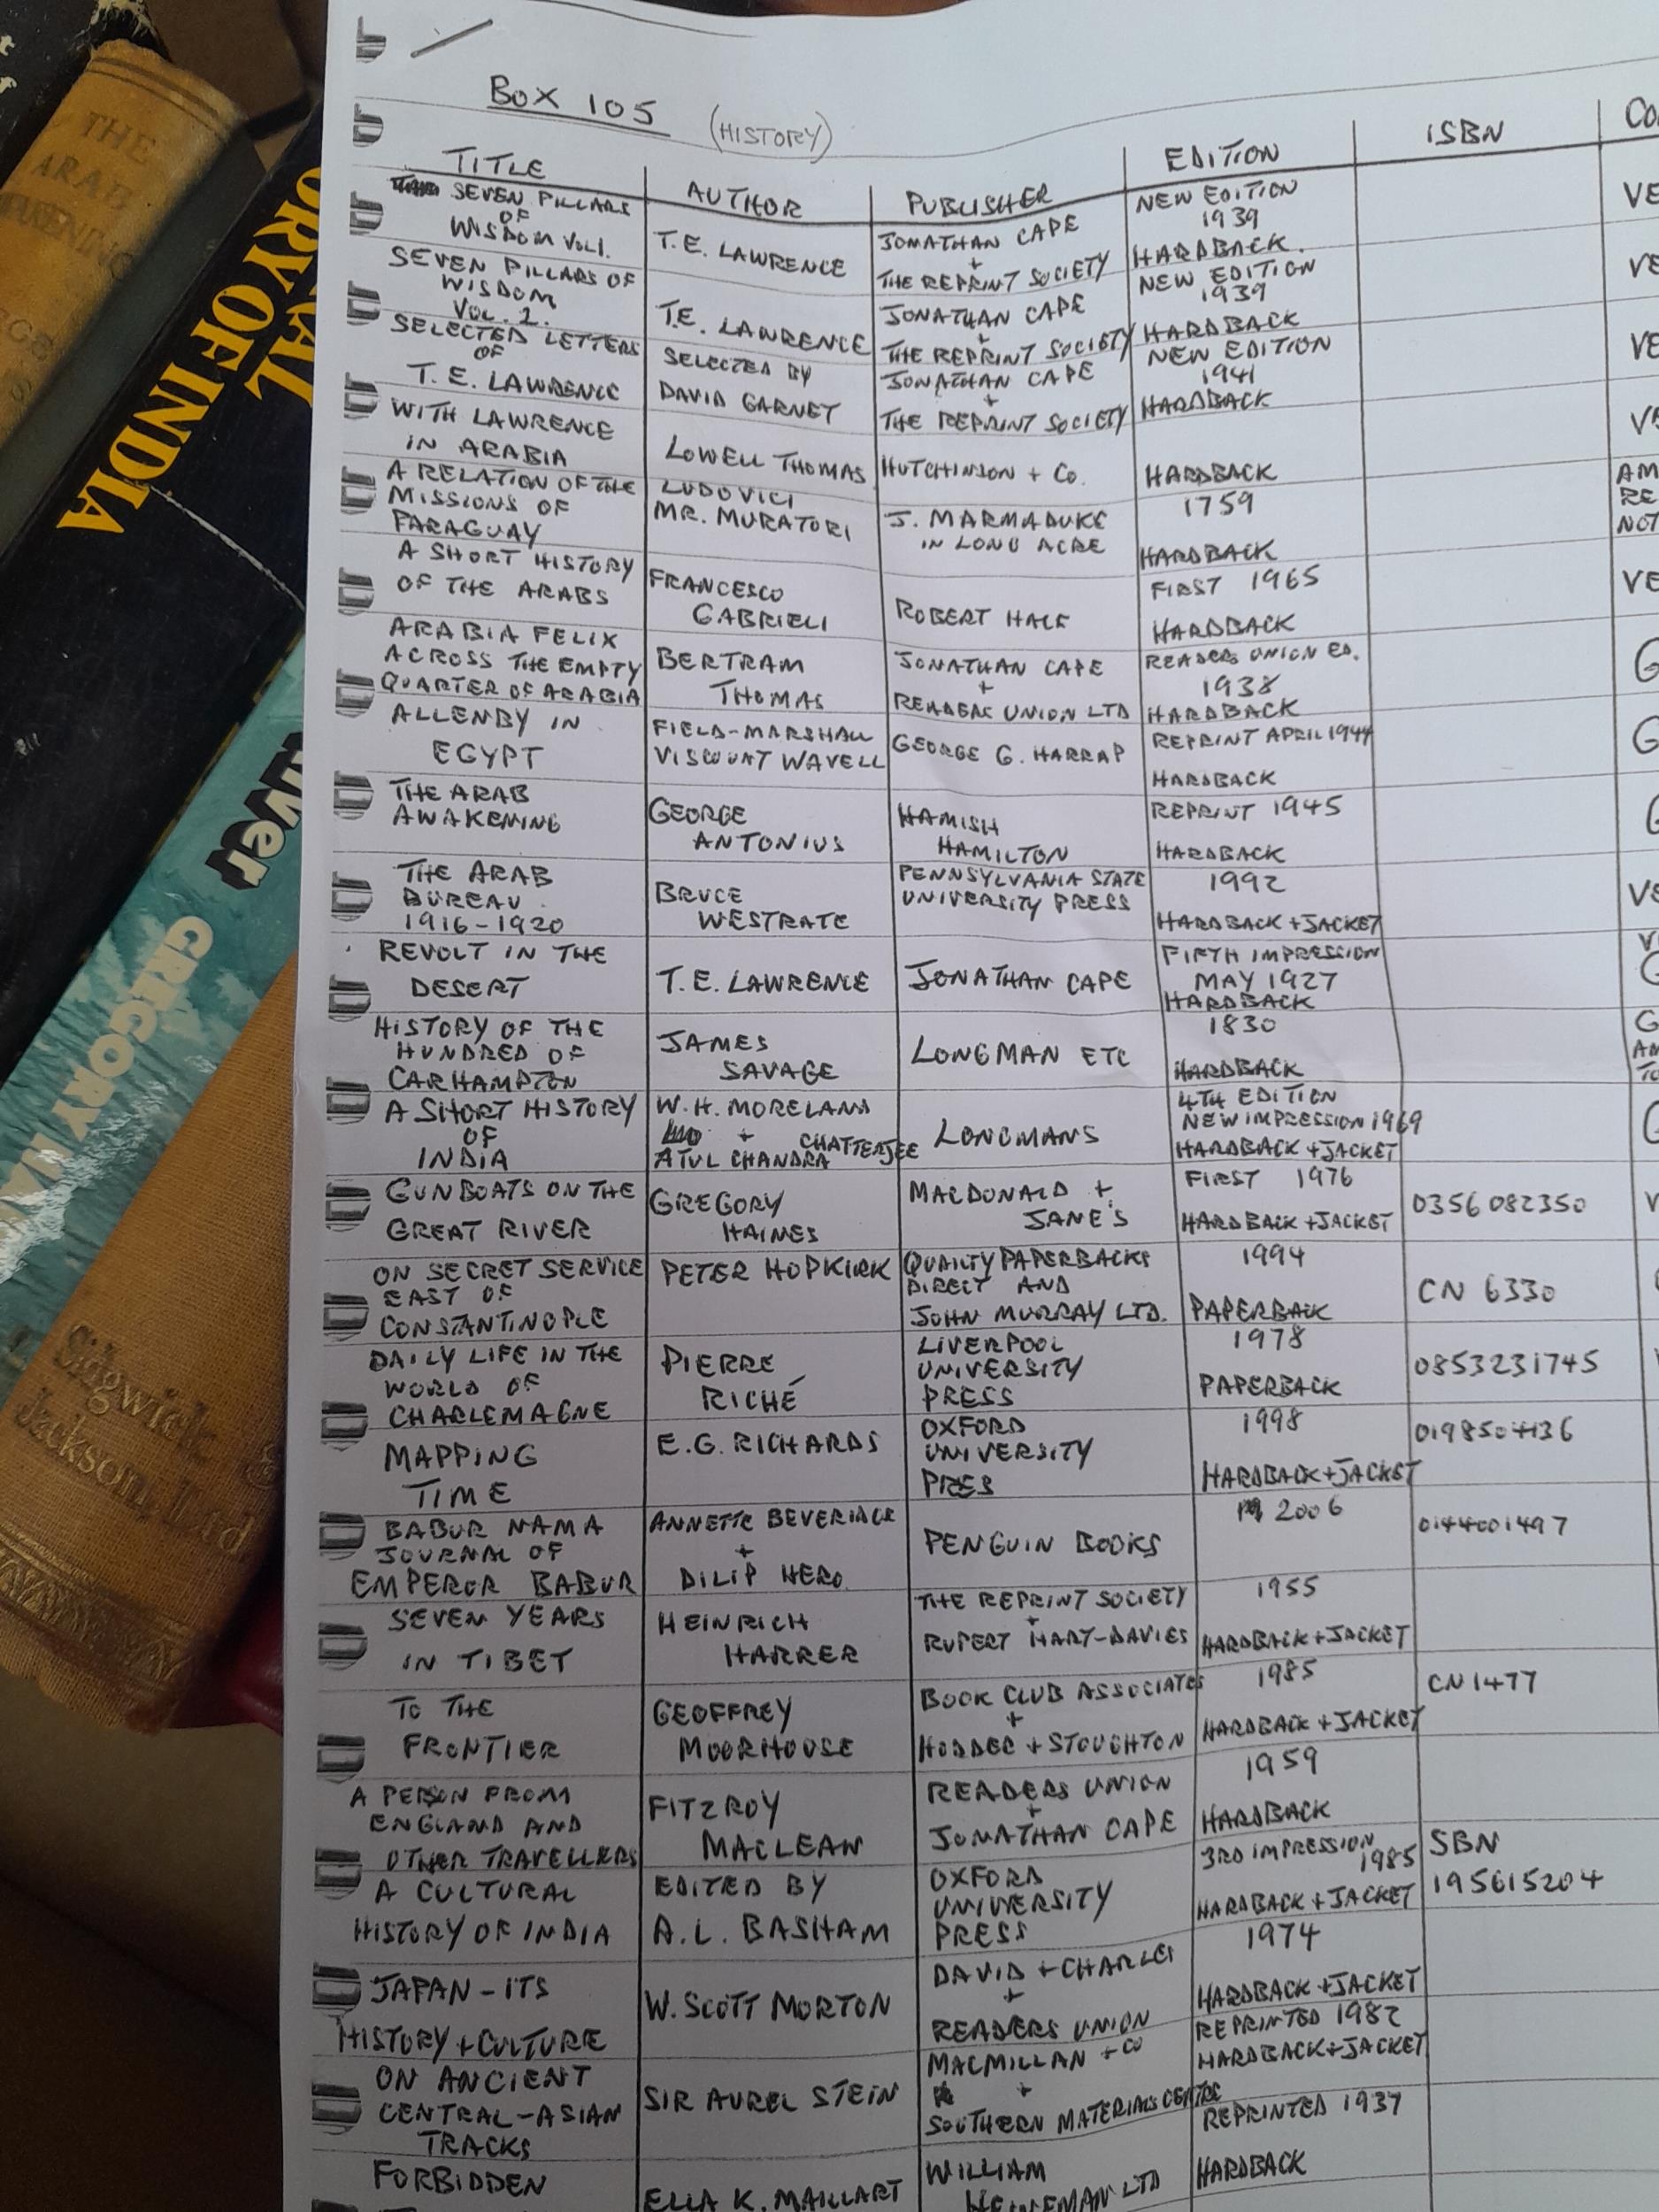 BOX 105
(HISTORY)
TITLE AUTHOR PUBLISHER EDITION ISBN
SEVEN PILLARS OF WISDOM VOL 1. T.E. LAWRENCE JONATHAN CAPE + THE REPRINT SOCIETY NEW EDITION 1939 HARDBACK. VE
SEVEN PILLARS OF WISDOM VOL. 2. T.E. LAWRENCE JONATHAN CAPE + THE REPRINT SOCIETY NEW EDITION 1939 HARDBACK VE
SELECTED LETTERS OF T. E. LAWRENCE SELECTED BY DAVID GARNET JONATHAN CAPE + THE REPRINT SOCIETY NEW EDITION 1941 HARDBACK VE
WITH LAWRENCE IN ARABIA LOWELL THOMAS HUTCHINSON + CO. HARDBACK
A RELATION OF THE MISSIONS OF PARAGUAY LUDOVICI MR. MURATORI J. MARMADUKE IN LONG ACRE 1759 HARDBACK AM RE NOT
A SHORT HISTORY OF THE ARABS FRANCESCO GABRIELI ROBERT HALE FIRST 1965 HARDBACK VE
ARABIA FELIX ACROSS THE EMPTY QUARTER OF ARABIA BERTRAM THOMAS JONATHAN CAPE + READERS UNION LTD READERS UNION ED. 1938 HARDBACK G
ALLENBY IN EGYPT FIELD-MARSHALL VISCOUNT WAVELL GEORGE G. HARRAP REPRINT APRIL 1944 HARDBACK G
THE ARAB AWAKENING GEORGE ANTONIUS HAMISH HAMILTON REPRINT 1945 HARDBACK
THE ARAB BUREAU 1916-1920 BRUCE WESTRATE PENNSYLVANIA STATE UNIVERSITY PRESS 1992 HARDBACK + JACKET VE
REVOLT IN THE DESERT T.E. LAWRENCE JONATHAN CAPE FIFTH IMPRESSION MAY 1927 HARDBACK
HISTORY OF THE HUNDRED OF CARHAMPTON JAMES SAVAGE LONGMAN ETC 1830 HARDBACK
A SHORT HISTORY OF INDIA W.H. MORELAND + ATUL CHANDRA CHATTERJEE LONGMANS 4TH EDITION NEW IMPRESSION 1969 HARDBACK + JACKET
GUNBOATS ON THE GREAT RIVER GREGORY HAINES MACDONALD + JANE'S FIRST 1976 HARDBACK + JACKET 0356 082350
ON SECRET SERVICE EAST OF CONSTANTINOPLE PETER HOPKIRK QUALITY PAPERBACKS DIRECT AND JOHN MURRAY LTD. 1994 PAPERBACK CN 6330
DAILY LIFE IN THE WORLD OF CHARLEMAGNE PIERRE RICHÉ LIVERPOOL UNIVERSITY PRESS 1978 PAPERBACK 0853231745
MAPPING TIME E.G. RICHARDS OXFORD UNIVERSITY PRESS 1998 HARDBACK + JACKET 0198504136
BABUR NAMA JOURNAL OF EMPEROR BABUR ANNETTE BEVERIDGE + DILIP HERO PENGUIN BOOKS 2006 0144001497
SEVEN YEARS IN TIBET HEINRICH HARRER THE REPRINT SOCIETY + RUPERT HART-DAVIES 1955 HARDBACK + JACKET
TO THE FRONTIER GEOFFREY MOORHOUSE BOOK CLUB ASSOCIATES + HODDER + STOUGHTON 1985 HARDBACK + JACKET CN1477
A PERSON FROM ENGLAND AND OTHER TRAVELLERS FITZROY MACLEAN READERS UNION + JONATHAN CAPE 1959 HARDBACK
A CULTURAL HISTORY OF INDIA EDITED BY A.L. BASHAM OXFORD UNIVERSITY PRESS 3RD IMPRESSION 1985 HARDBACK + JACKET SBN 195615204
JAPAN - ITS HISTORY + CULTURE W. SCOTT MORTON DAVID + CHARLES + READERS UNION 1974 HARDBACK + JACKET
ON ANCIENT CENTRAL-ASIAN TRACKS SIR AUREL STEIN MACMILLAN + CO + SOUTHERN MATERIALS CENTRE REPRINTED 1982 HARDBACK + JACKET
FORBIDDEN ELLA K. MAILLART WILLIAM HEINEMAN LTD REPRINTED 1937 HARDBACK
THE
ARAB
ORY OF INDIA
GREGORY HA
Sidgwick &
Jackson, Ltd.